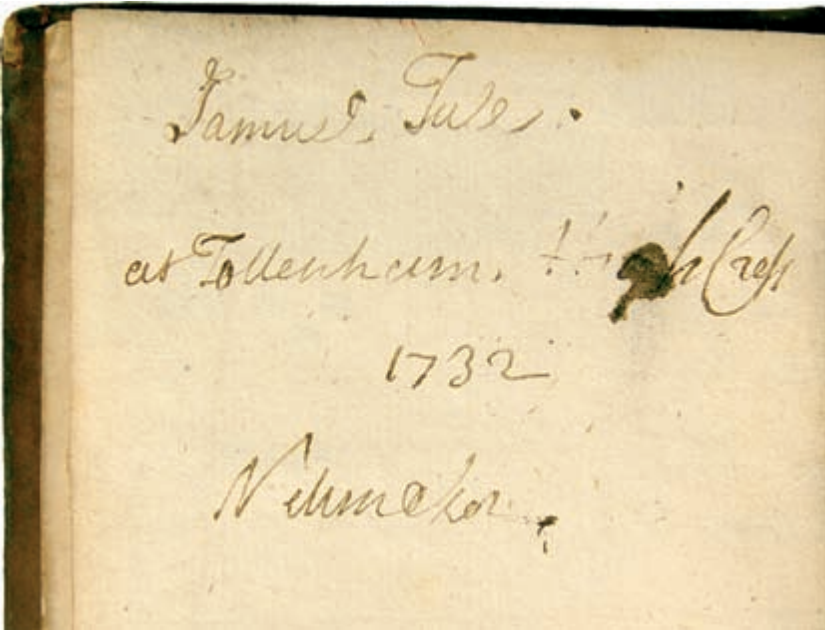 Samuel Tull.
at Tottenham. High Croſs
1732
Netmaker.